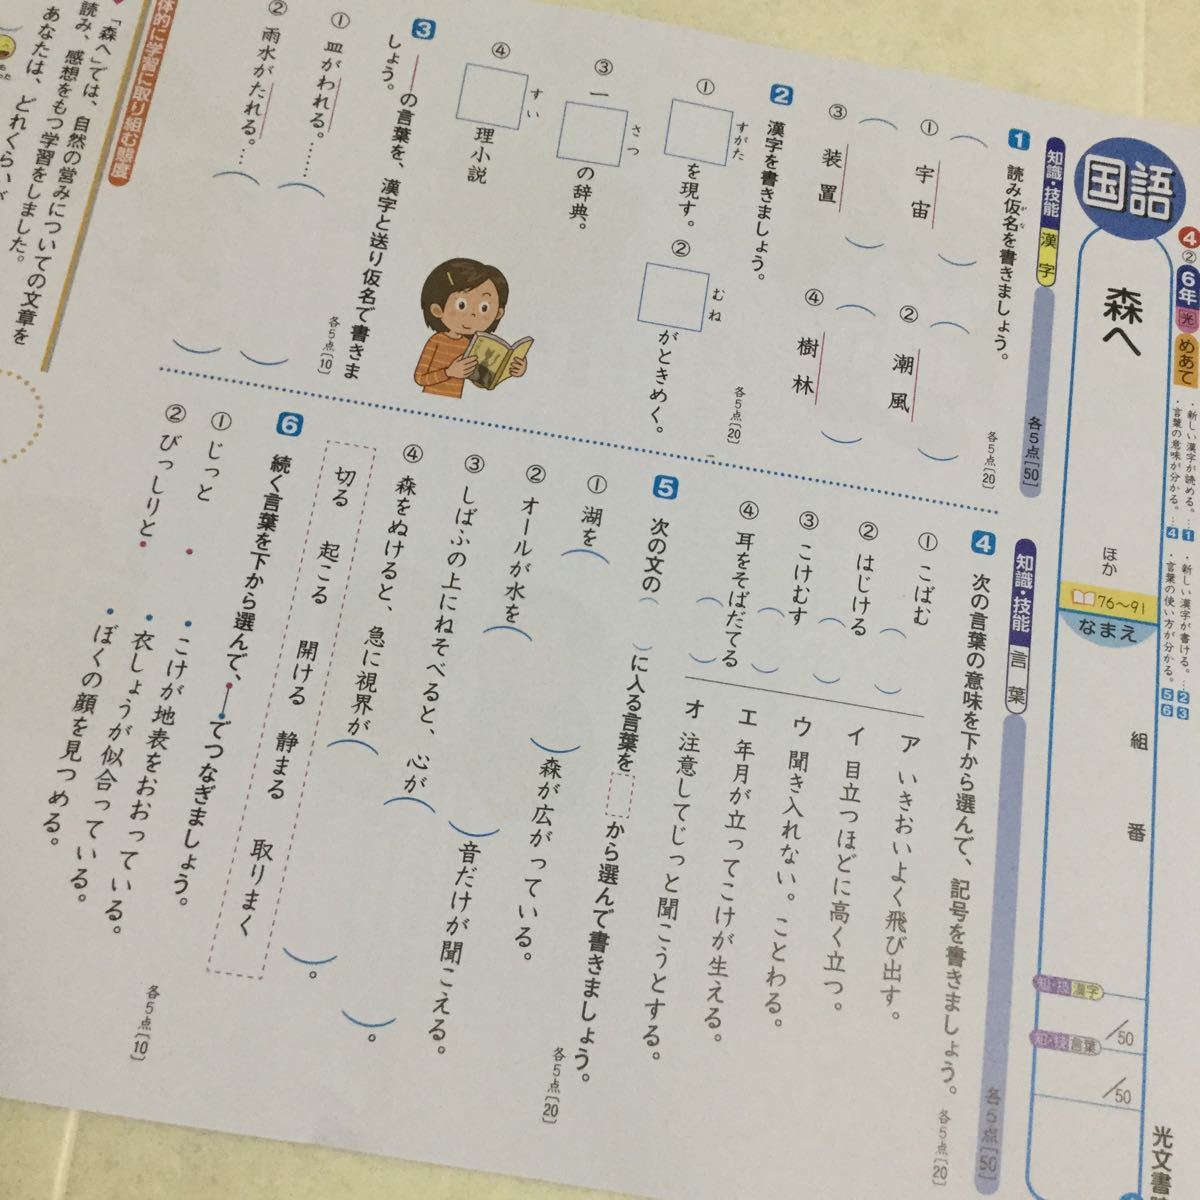 国語
④②6年 光 めあて
・新しい漢字が読める。…1
・言葉の意味が分かる。…4
・新しい漢字が書ける。…2 3
・言葉の使い方が分かる。…5 6
森へ
ほか
76〜91
なまえ
組
番
知・技 漢字
/50
知・技 言葉
/50
知識・技能 漢字
各5点[50]
1 読み仮名を書きましょう。
がな
各5点[20]
① 宇宙
② 潮風
③ 装置
④ 樹林
2 漢字を書きましょう。
各5点[20]
① すがた を現す。
② むね がときめく。
③ 一 さつ の辞典。
④ すい 理小説
3 ――の言葉を、漢字と送り仮名で書きま
しょう。
各5点[10]
① 皿がわれる。……
② 雨水がたれる。…
知識・技能 言葉
各5点[50]
4 次の言葉の意味を下から選んで、記号を書きましょう。
各5点[20]
① こばむ
② はじける
③ こけむす
④ 耳をそばだてる
ア いきおいよく飛び出す。
イ 目立つほどに高く立つ。
ウ 聞き入れない。ことわる。
エ 年月が立ってこけが生える。
オ 注意してじっと聞こうとする。
5 次の文の( )に入る言葉を から選んで書きましょう。
各5点[20]
① 湖を( )森が広がっている。
② オールが水を( )音だけが聞こえる。
③ しばふの上にねそべると、心が( )。
④ 森をぬけると、急に視界が( )。
切る 起こる 開ける 静まる 取りまく
6 続く言葉を下から選んで、・―・でつなぎましょう。
各5点[10]
① じっと ・
② びっしりと ・
・ こけが地表をおおっている。
・ 衣しょうが似合っている。
・ ぼくの顔を見つめる。
体的に学習に取り組む態度
「森へ」では、自然の営みについての文章を
読み、感想をもつ学習をしました。
あなたは、どれくらい
光文書